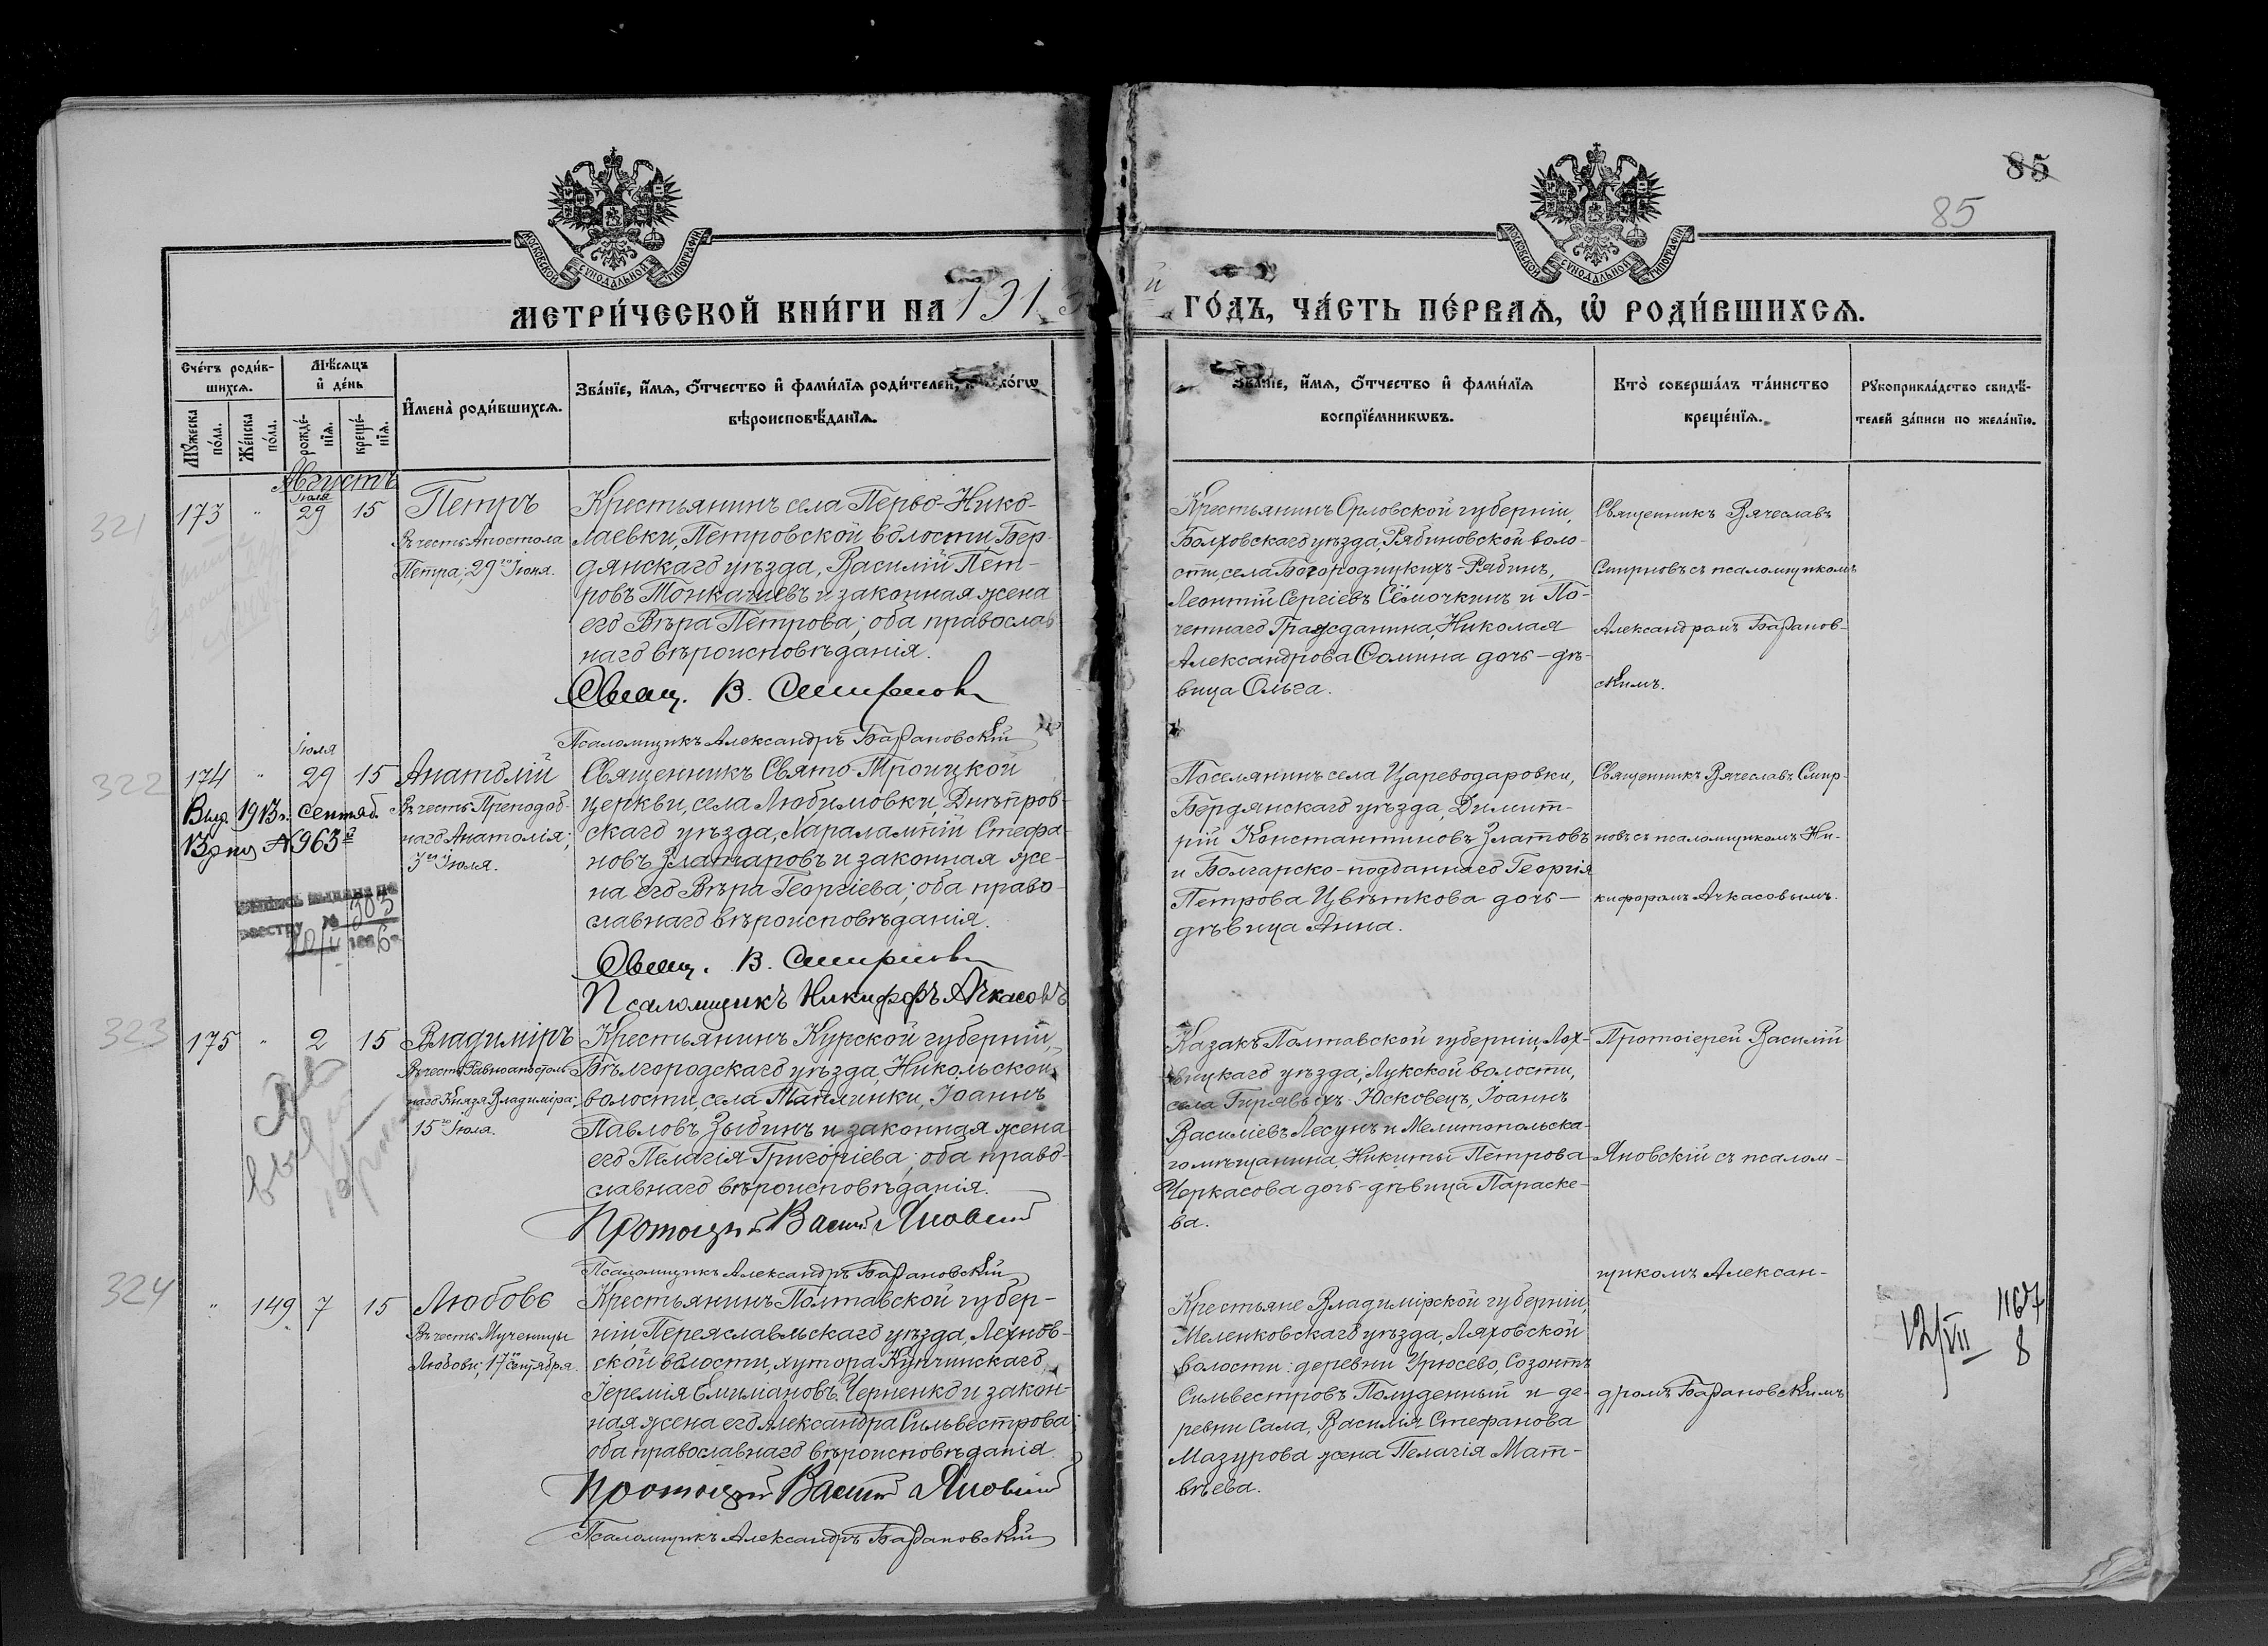 85
85
МОСКОВСКОЙ СѴНОДАЛЬНОЙ ТИПОГРАФІИ
МОСКОВСКОЙ СѴНОДАЛЬНОЙ ТИПОГРАФІИ
МЕТРИ́ЧЕСКОЙ КНИ́ГИ НА 1913
й ГО́ДЪ, ЧА́СТЬ ПЕ́РВАѦ, Ѡ҆ РОДИ́ВШИХСѦ.
Сче́тъ роди́в-
шихсѧ.
Мѣ́сѧцъ
и҆ де́нь
Мꙋ́жеска по́ла.
Же́нска по́ла.
рожде́-
нїѧ.
креще́-
нїѧ.
И҆мена̀ роди́вшихсѧ.
Зва́нїе, и҆́мѧ, ѻ҆́тчество и҆ фами́лїѧ роди́телей,
вѣроисповѣ́данїѧ.
Зва́нїе, и҆́мѧ, ѻ҆́тчество и҆ фами́лїѧ
воспрїе́мникѡвъ.
Кто̀ соверша́лъ та́инство
креще́нїѧ.
Рꙋкоприкла́дство свидѣ́-
телей за́писи по жела́нїю.
Августъ
321
173 " Іюля 29 15
Петръ
Въ честь Апостола
Петра; 29го Іюня.
Крестьянинъ села Перво-Нико-
лаевки, Петровской волости, Бер-
дянскаго уѣзда, Василій Пет-
ровъ Тонкачиевъ и законная жена
его Вѣра Петрова; оба православ-
наго вѣроисповѣданія.
Свящ. В. Смирновъ
Псаломщикъ Александръ Барановскій
Крестьянинъ Орловской губерніи,
Болховскаго уѣзда, Рябиновской воло-
сти, села Богородицкихъ-Рябинъ,
Леонтій Сергіевъ Сёмочкинъ и По-
четнаго Гражданина, Николая
Александрова Сомина дочь-дѣ-
вица Ольга.
Священникъ Вячеславъ
Смирновъ съ псаломщикомъ
Александромъ Баранов-
скимъ.
322
174 " Іюля 29 15
Выд. 1913 г. Сентяб.
№ 963й
Анатолій
Въ честь Преподоб-
наго Анатолія;
3го Іюля.
выдана по
реестру № 303
Священникъ Свято-Троицкой
церкви, села Любимовки, Днѣпров-
скаго уѣзда, Харалампій Стефа-
новъ Златаровъ и законная же-
на его Вѣра Георгіева; оба право-
славнаго вѣроисповѣданія.
Свящ. В. Смирновъ
Псаломщикъ Никифоръ Ачкасовъ
Поселянинъ села Цареводаровки,
Бердянскаго уѣзда, Димит-
рій Константиновъ Златовъ
и Болгарско-подданнаго Георгія
Петрова Цвѣткова дочь-
дѣвица Анна.
Священникъ Вячеславъ Смир-
новъ съ псаломщикомъ Ни-
кифоромъ Ачкасовымъ.
323
175 " 2 15
Владиміръ
Въ честь Равноапостоль-
наго Князя Владиміра;
15го Іюля.
Крестьянинъ Курской губерніи,
Бѣлгородскаго уѣзда, Никольской
волости, села Таплинки, Іоаннъ
Павловъ Зыбинъ и законная жена
его Пелагія Григоріева; оба право-
славнаго вѣроисповѣданія.
Протоіерей Василій Яновскій
Псаломщикъ Александръ Барановскій
Казакъ Полтавской губерніи, Лох-
вицкаго уѣзда, Лукской волости,
села Гирявыхъ-Юсковецъ, Іоаннъ
Василіевъ Лесунъ и Мелитопольска-
го мѣщанина, Никиты Петрова
Черкасова дочь-дѣвица Параске-
ва.
Протоіерей Василій
Яновскій съ псалом-
щикомъ Алексан-
дромъ Барановскимъ
324
" 149 7 15
Любовь
Въ честь Мученицы
Любови; 17го Сентября.
Крестьянинъ Полтавской губер-
ніи, Переяславльскаго уѣзда, Лехнов-
ской волости, хутора Купчинскаго,
Іеремія Емиліановъ Черненко и закон-
ная жена его Александра Сильвестрова;
оба православнаго вѣроисповѣданія.
Протоіерей Василій Яновскій
Псаломщикъ Александръ Барановскій
Крестьяне Владимірской губерніи,
Меленковскаго уѣзда, Ляховской
волости: деревни Урюсево, Созонтъ
Сильвестровъ Полуденный и де-
ревни Сала, Василія Стефанова
Мазурова жена Пелагія Мат-
вѣева.
12/VII 1167
8